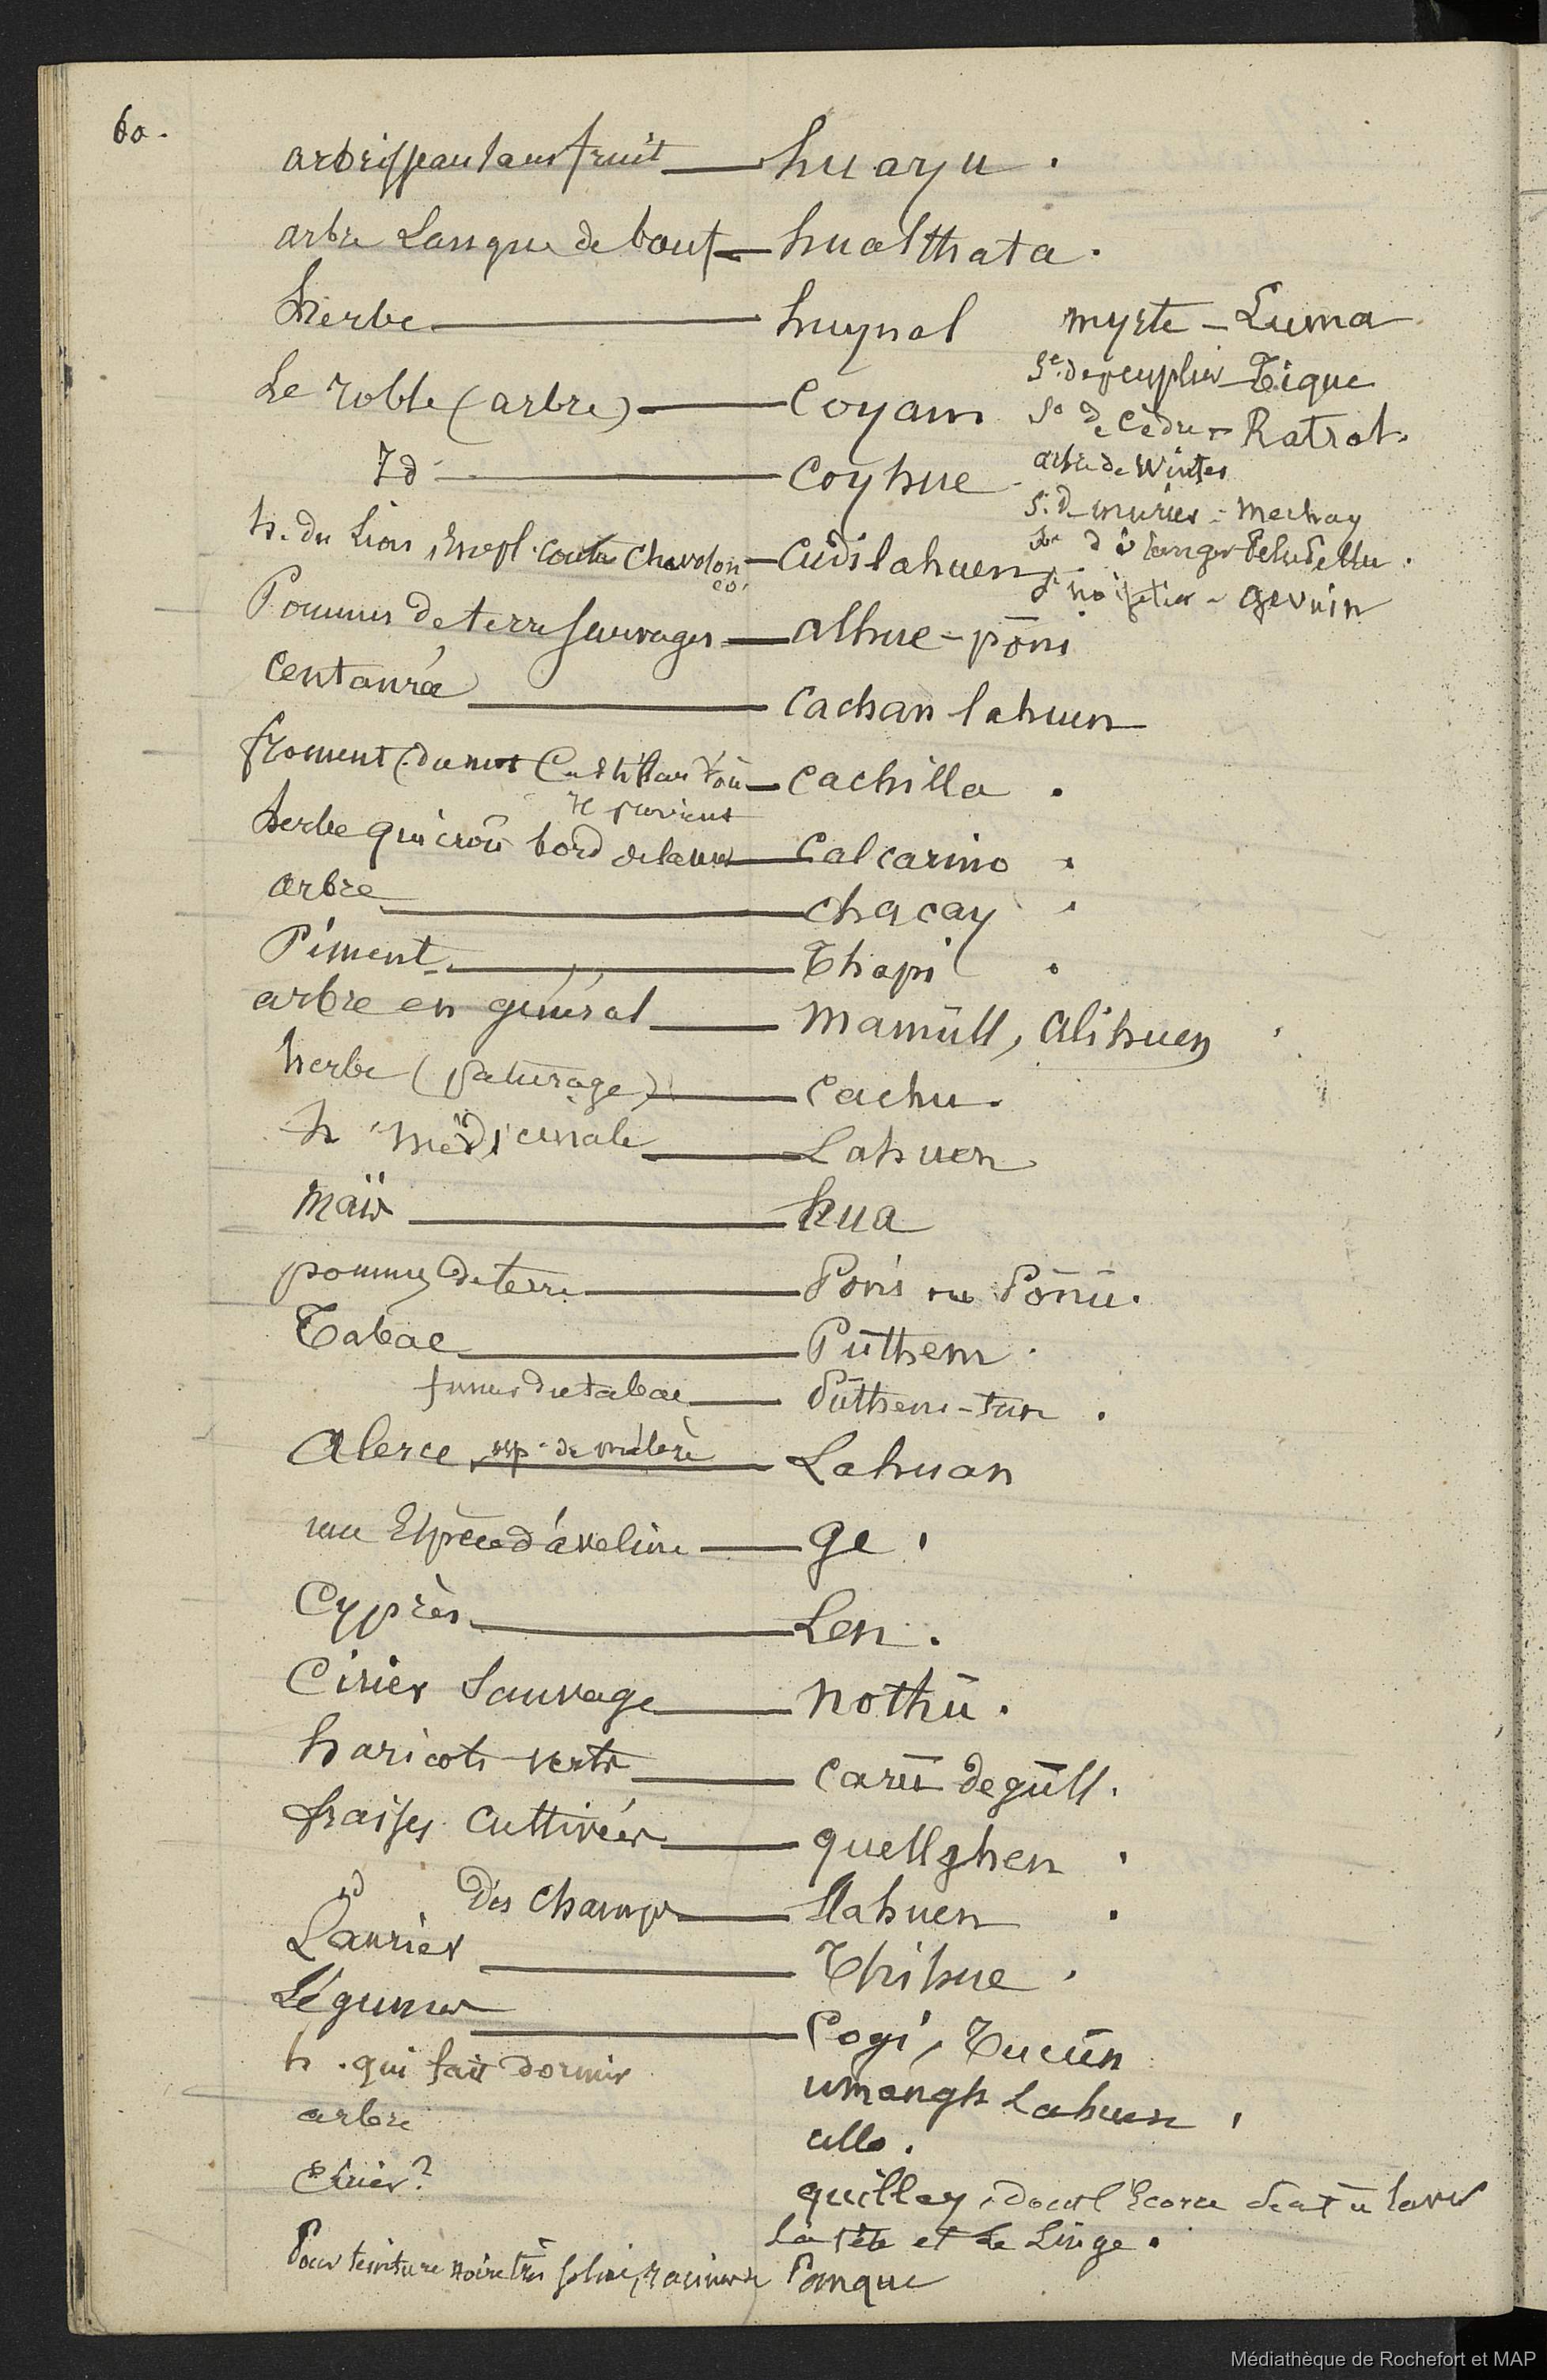 60.
arbrisseau sans fruit — huaryu.
arbre Langue de bœuf — hualthata.
herbe — huynal
Le roble (arbre) — Coyam
Id — Coyhue
h. du Lion, Empl. contre Chardon — Cudilahuen
Pommes de terre Sauvages — alhue-pōni
Centaurée — Cachan lahuen
froment (du mot Castillan d'où — Cachilla.
il provient
herbe qui croît bord de la mer — Calcarino.
arbre — Chacay.
Piment — Thapi.
arbre en général — mamūll, alihuen
herbe (paturage) — Cachu.
h médicinale — Lahuen
maïs — hua
pommes de terre — Poni ou Pōnū.
Tabac — Pūthem.
fumer du tabac — Pūthem-tun.
Alerce, esp. de mélèze — Lahuan
une Espèce d'aveline — ge.
Cyprès — Len.
Cirier Sauvage — nothū.
haricots verts — Carū degūll.
fraises Cultivées — quellghen.
id des champs — llahuen.
Laurier — Thihue.
Légumes — Pogi, Tucūn
h. qui fait dormir umangh Lahuen.
arbre ullo.
quillay, dont l'Ecorce sert à laver
la tête et le Linge.
Pour teinture noire très solide, racines de Panque
myrte — Luma
Se. de peuplier — Tique
Se de Cèdre — Ratral.
arbre de Winter
S. de murier — mechay
d'oranger Pelu Pellu.
noisetier — gevuin